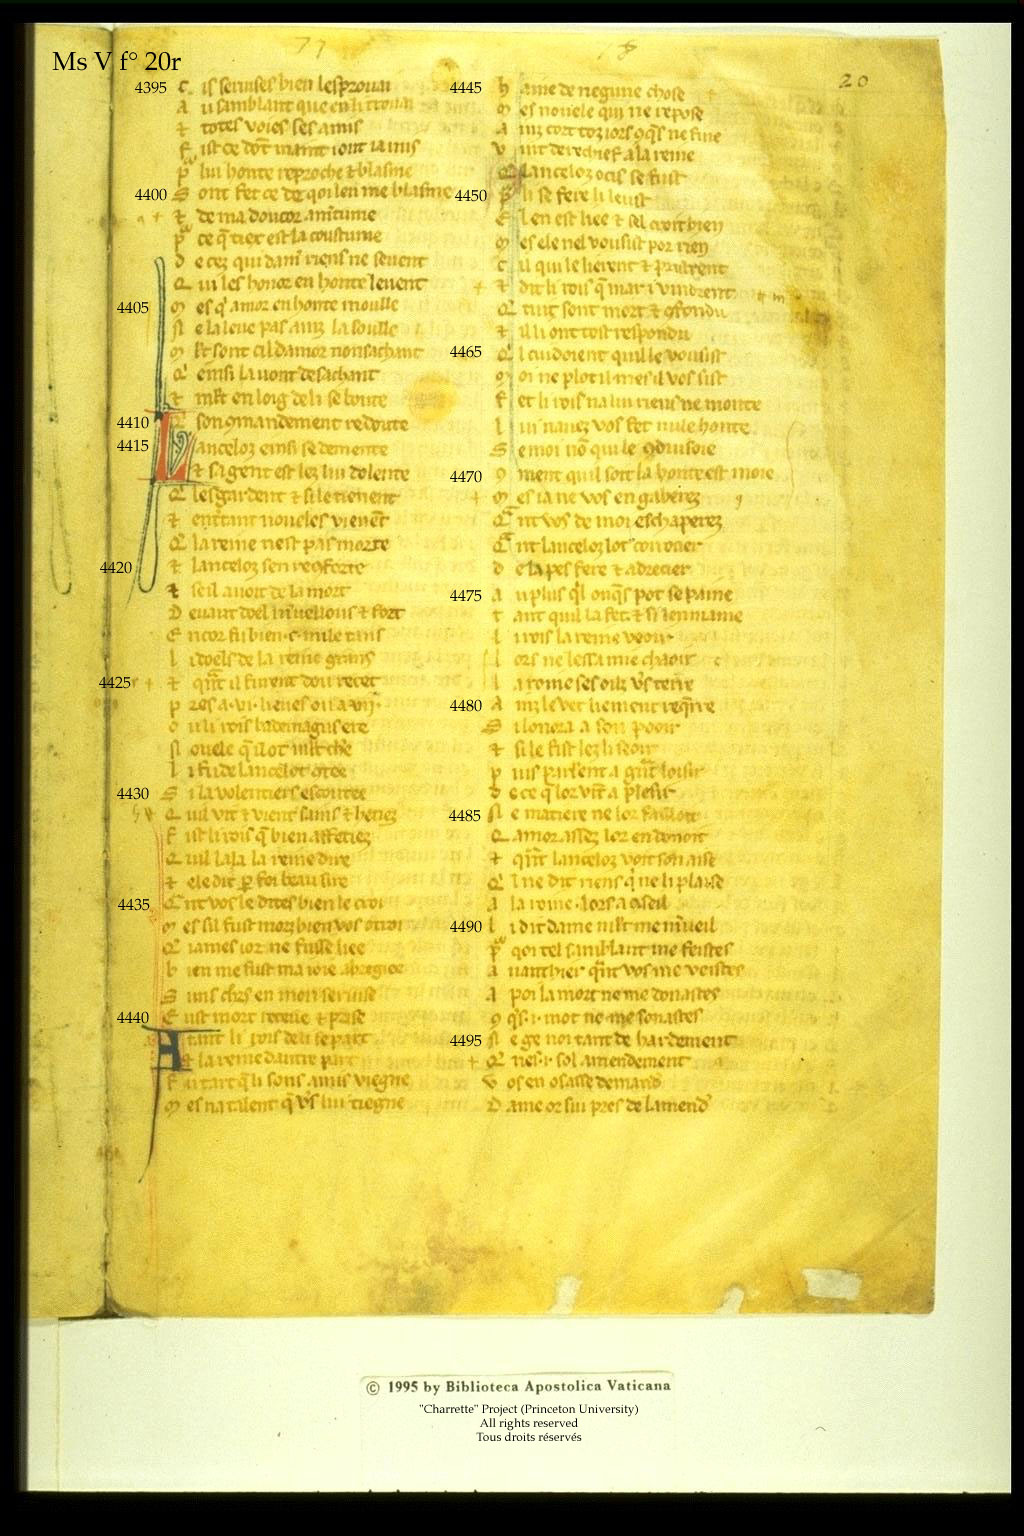 Ms V f° 20r
20
4395 C is servises bien lesprovai
A u samblant que en li trovai
⁊ totes voies ses amis
F ist ce dōt maint mont la mis
P lui honte reproche ⁊ blasme
4400 S ont fet ce de qoi len me blasme
⁊ de ma doucor am̄tume
P ce q̄ tiex est la coustume
D e cez qui dam̄ riens ne sevent
Q ui les honor en honte levent
4405 M es q̄ amor en honte moulle
N e la leve pas ainz la soulle
M lt sont cil damor nonsachant
Q̄ einsi la vont desachant
⁊ mlt en loig de li se boute
4410 Q̄ son 9mandement redoute
4415 L ancelos einsi se demente
⁊ sa gent est lez lui dolente
Q̄ les gardent ⁊ si le tienent
⁊ entant noveles vienēt
Q̄ la reine nest pas morte
4420 ⁊ lancelos sen re9forte
⁊ se il avoit de la mort
D evant doel m̄vellous ⁊ fort
E ncor fu bien .c. mile tans
L i doels de la reine grans
4425 ⁊ qn̄t il furent dou recet
P res a .vi. lieues ou a .vii.
O u li rois bademagus ere
N ovele q̄ il ot mlt che
L i fu de lancelot 9tee
4430 S i la volentiers escoutee
Q uil vit ⁊ vient sains ⁊ hetiez
F ist li rois q̄ bien affetiez
Q uil lala la reine dire
⁊ ele dit p̱ foi beau sire
4435 Q̄nt vos le dites bien le croi
M es sil fust morz bien vos otroi
Q̄ iames ior ne fusse liee
B ien me fust ma ioie abregiee
S uns chrs en mon servise
4440 E ust mort receue ⁊ prise
A tant li rois deli se part
⁊ la reine dautre part
F ai tart q̄ li sons amis viegne
M es na talent q̄ v̄s lui tiegne
4445 h aine de negune chose
M es novele qui ne repose
A inz cort toz iors 9qs ne fine
V int derechief a la reine
Q̄ lancelos ocis se fust
4450 P li se fere li leust
E l en est liee ⁊ sel croit bien
M es ele nel vousist por rien
C il qui le tienent ⁊ pruvent
⁊ dit li rois q̄ mar i vindrent
Q̄ tuit sont mort ⁊ 9fondu
⁊ il li ont tost respondu
4465 Q̄ l cuidoient quil le vousist
M oi ne plot il mes il vos sist
F et li rois na lui riens ne monte
L ui navez vos fet nule honte
S e moi nō qui le 9duisoie
4470 9 ment quil soit la honte est moie
M es ia ne vos en gaberez
Q̄nt vos de moi eschaperez
Q̄nt lancelos lot couroucier
D e la pes fere ⁊ adrecier
4475 A u plus q̄l onq̄s pot se paine
T ant quil la fet ⁊ si lenmaine
L i rois la reine veoir
L ors ne lessa mie chaoir
L a roine ses oils v̄s terre
4480 A inz le vet liement req̄rre
S i lonora a son pooir
⁊ si le fist lez li seoir
P uis parlent a gn̄t loisir
D e ce q̄ lor vīt a plesir
4485 N e matiere ne lor failloit
Q̄ amor assez lor en donoit
⁊ qn̄t lancelos voit son aise
Q̄ l ne dit riens q̄ ne li plaise
A la reine . lors a 9seil
4490 L i dit dame mlt me m̄veil
P qoi tel samblant me feistes
A vanthier qn̄t vos me veistes
A poi la mort ne me donastes
9 qs .i. mot ne me sonastes
4495 N e ge noi tant de hardement
Q̄ neis .i. sol amendement
V os en osasse demand̄
D ame or sui pres de lamend̄
© 1995 by Biblioteca Apostolica Vaticana
"Charrette" Project (Princeton University)
All rights reserved
Tous droits réservés